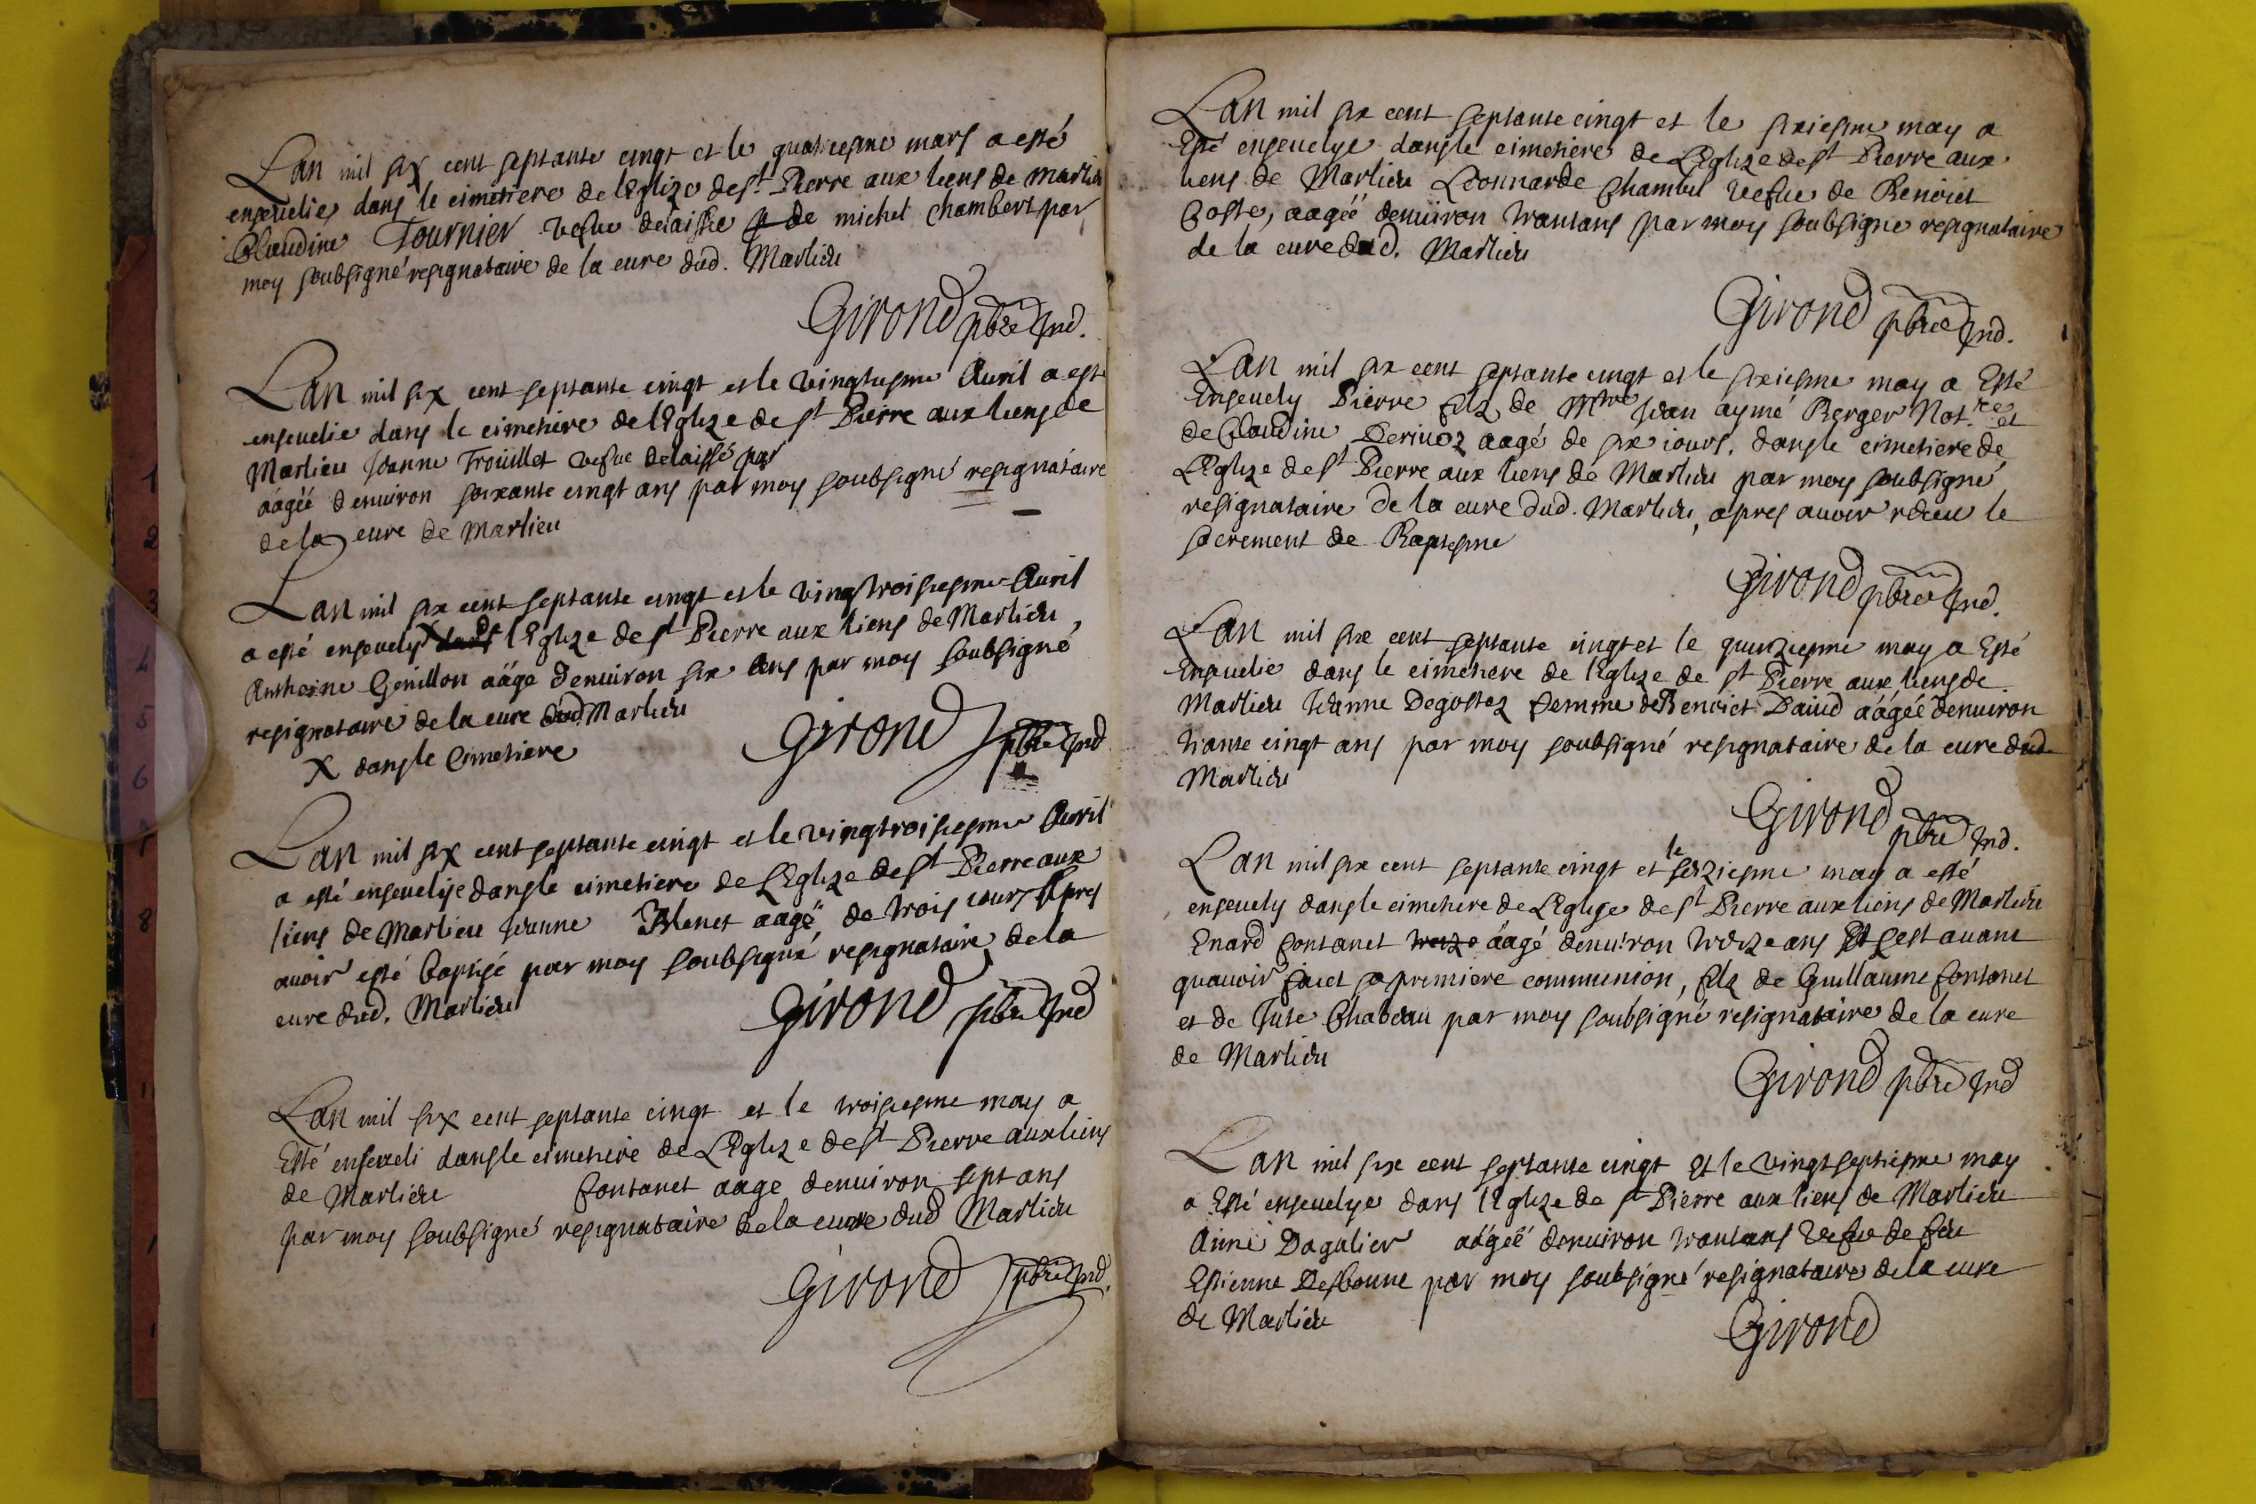 Lan mil six cent septante cinqt et le quatriesme mars a esté
enseuelie dans le cimetiere de lEglize de st. Pierre aux liens de Marlieu
Claudine Tournier vefue delaissee de michel Chambert par
moy soubsigné resignataire de la cure dud. Marlieu
Girond pbre Ind.
Lan mil six cent septante cinqt et le vingtiesme Auril a esté
enseuelie dans le cimetiere de lEglize de st Pierre aux liens de
Marlieu Jeanne Trouillet vefue delaissé par
aágéé denuiron soixante cinqt ans par moy soubsigné resignataire
de la cure de Marlieu
Lan mil six cent septante cinqt et le vingtroisiesme Auril
a esté enseuely X dans lEglize de st Pierre aux liens de Marlieu,
Antheine Genillon aágé denuiron six ans par moy soubsigné
resignataire de la cure dud. Marlieu
X dans le Cimetiere
Girond pbre Ind
Lan mil six cent septante cinqt et le vingtroisiesme Auril
a esté enseuelije dans le cimetiere de LEglize de st Pierre aux
liens de Marlieu Jeanne aagé de trois iours Apres
auoir esté baptisé par moy soubsigné resignataire de la
cure dud. Marlieu
Girond pbre Ind
Lan mil six cent septante cinqt et le troisiesme may a
Esté enseueli dans le cimetiere de LEglize de st Pierre aux liens
de Marlieu Fontanet aagé denuiron sept ans
par moy soubsigné resignataire de la cure dud Marlieu
Girond pbre Ind.
Lan mil six cent septante cinqt et le sixiesme may a
Esté enseuelye dans le cimetiere de LEglize de st Pierre aux
liens de Marlieu Leonnarde Chambel vefue de Benoict
Coste, aagéé denuiron trantans par moy soubsigné resignataire
de la cure dud. Marlieu
Girond pbre Ind.
Lan mil six cent septante cinqt et le sixiesme may a Esté
Enseuely Pierre filz de Mtre Jean aymé Berger Notre et
de Claudine Perinoz aagé de six iours, dans le cimetiere de
LEglize de st Pierre aux liens de Marlieu par moy soubsigné
resignataire de la cure dud. Marlieu, apres auoir receu le
sacrement de Baptesme
Girond pbre Ind.
Lan mil six cent septante cinqt et le quinziesme may a Esté
Enseuelie dans le cimetiere de lEglize de st Pierre aux liens de
Marlieu Jeanne Degostez femme de Benoict Dauid aágéé denuiron
trante cinqt ans par moy soubsigné resignataire de la cure dud.
Marlieu
Girond pbre Ind.
Lan mil six cent septante cinqt et le seiziesme may a esté
enseuely dans le cimetiere de LEglize de st Pierre aux liens de Marlieu
Enard Fontanet treize áagé denuiron treize ans Et cest auant
quauoir faict sa premiere communion, filz de Guillaume Fontanet
et de Chabeau par moy soubsigné resignataire de la cure
de Marlieu
Girond pbre Ind
Lan mil six cent septante cinqt Et le vingtseptiesme may
a Esté enseuelye dans lEglize de st Pierre aux liens de Marlieu
Anne Dagalier aágéé denuiron trantans vefue de feu
Estienne Desbonne par moy soubsigné resignataire de la cure
de Marlieu
Girond